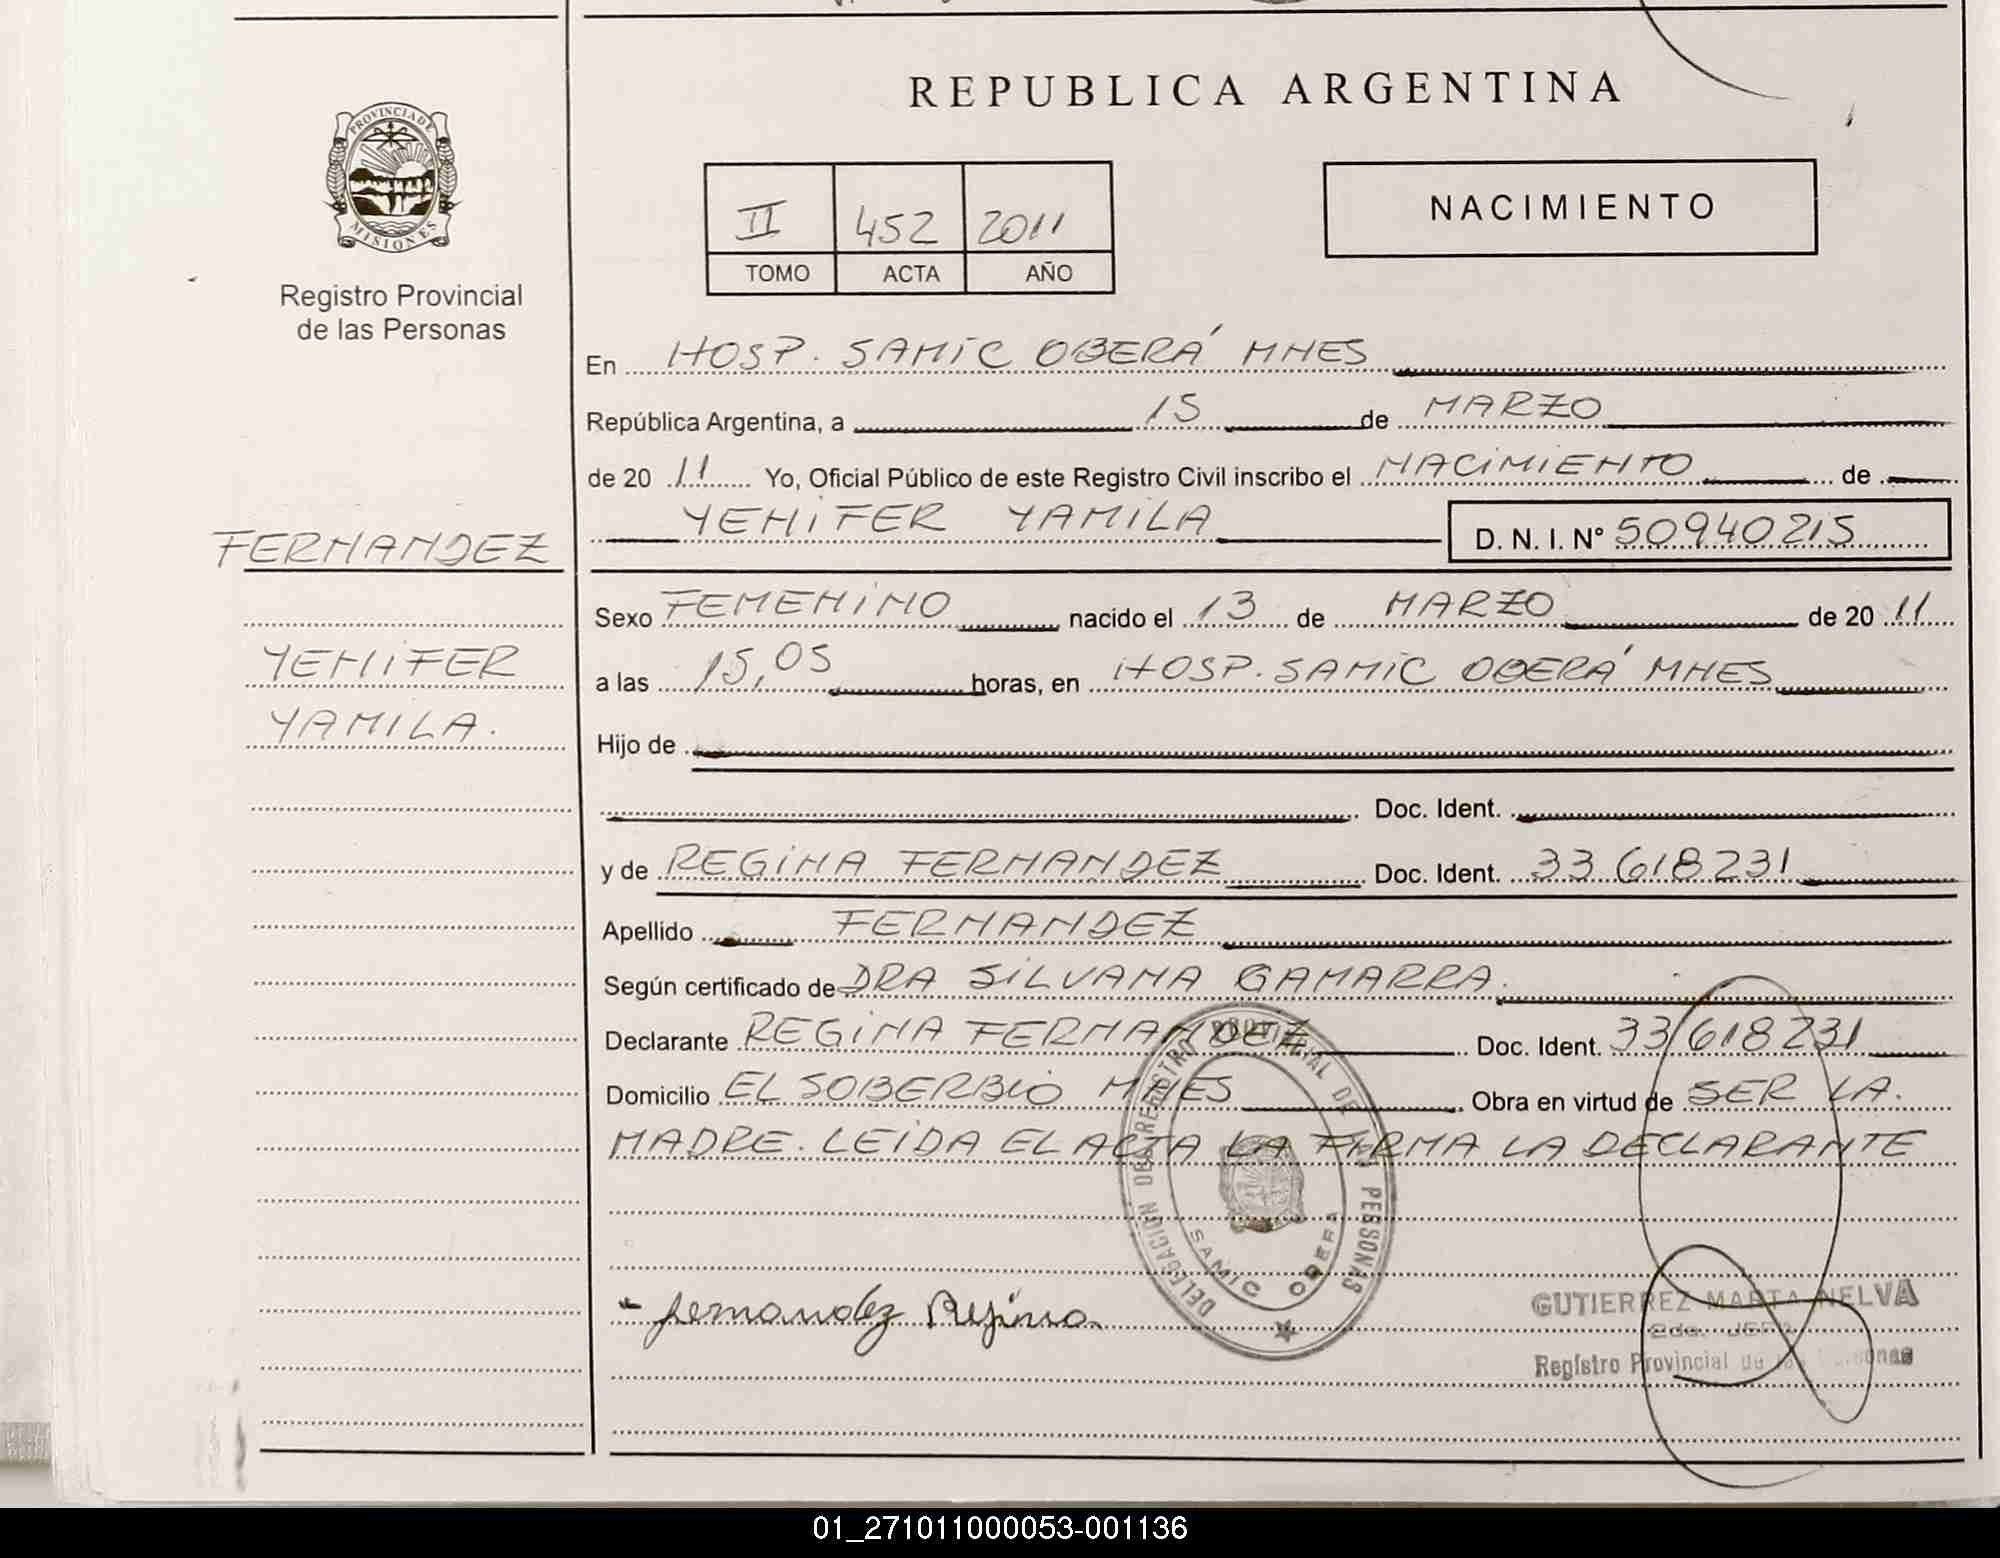 REPUBLICA ARGENTINA
PROVINCIA DE
MISIONES
Registro Provincial
de las Personas
II 452 2011
TOMO ACTA AÑO
NACIMIENTO
En HOSP. SAMIC OBERÁ MNES
República Argentina, a 15 de MARZO
de 20 11 Yo, Oficial Público de este Registro Civil inscribo el NACIMIENTO de
YENIFER YAMILA D. N. I. N° 50940215
FERNANDEZ
YENIFER
YAMILA.
Sexo FEMENINO nacido el 13 de MARZO de 20 11
a las 15,05 horas, en HOSP. SAMIC OBERÁ MNES
Hijo de
Doc. Ident.
y de REGINA FERNANDEZ Doc. Ident. 33 618231
Apellido FERNANDEZ
Según certificado de DRA SILVANA GAMARRA.
Declarante REGINA FERNANDEZ Doc. Ident. 33618231
Domicilio EL SOBERBIO MNES Obra en virtud de SER LA
MADRE. LEIDA EL ACTA LA FIRMA LA DECLARANTE
DELEGACION DEL REGISTRO PROVINCIAL DE LAS PERSONAS
SAMIC OBERA
Fernandez Regina
GUTIERREZ MARTA NELVA
2da. JEFA
Registro Provincial de las Personas
01_271011000053-001136